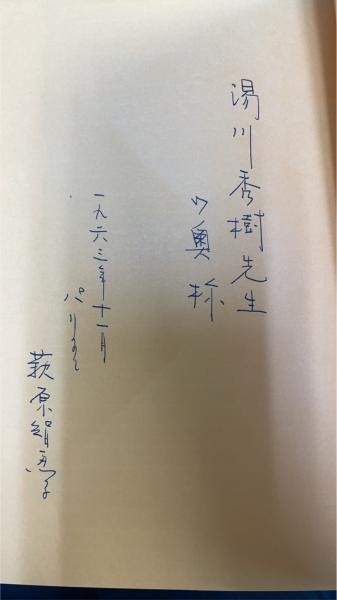 湯川秀樹先生
〃奥様
一九六三年十一月
パリにて
萩原絹惠子